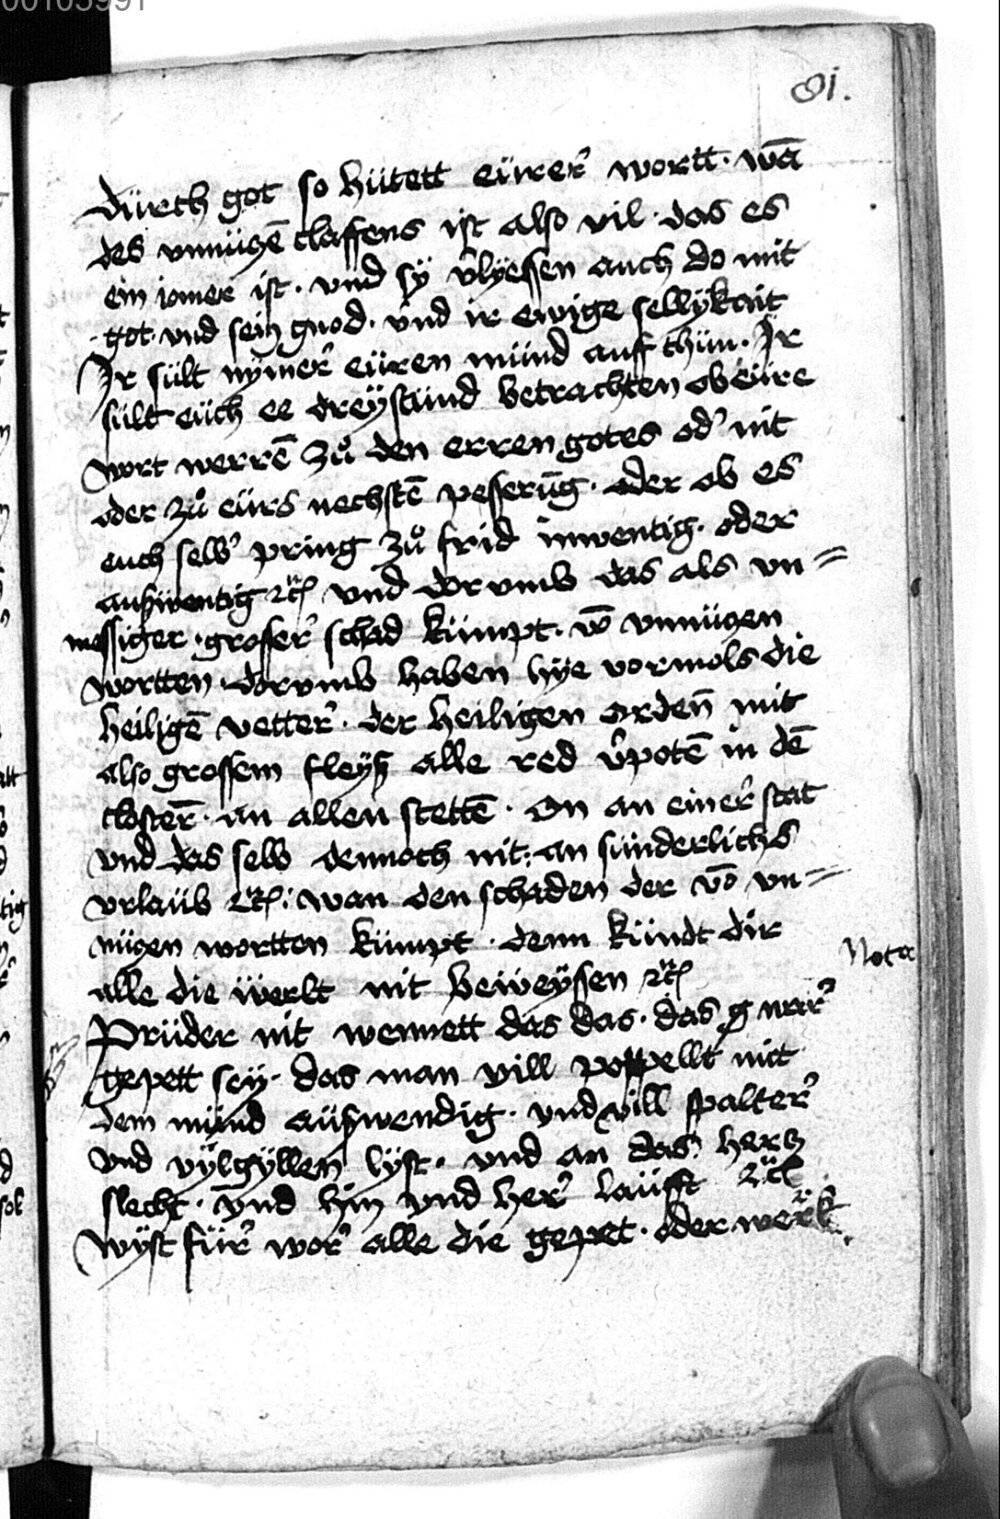 00105991
81.
dürch got so hütett eürer' wortt · wā
des vnnüczē claffens ist also vil · das es
ein iomer ist · vnd sÿ v'lyessen auch do mit
got · vnd sein gnod · vnd ir ewige sellÿkait
Ir sült nÿmer' eüren münd auff thün · Ir
sült eüch ee dreÿstünd betrachten ob eüre
wort werrē zů den erren gotes od' nit
oder zů eürs nechstē pesserūg · oder ob es
euch selb' pring zů frid inwentig · oder
auszwentig ꝛc vnd dorvmb das als vn=
messiger · grosser' schad kümpt · vō vnnüczen
wortten · dorvmb haben hÿe vormols die
heiligē vetter' · der heiligen ordēn mit
also grossem fleÿsz alle red v'potē in dē
closter̄ · an allen stettē · On an einer' stat
vnd das selb dennoch nit: an sünderlichs
vrlaüb ꝛc: wan den schaden der vō vn=
nüczen wortten kümpt · denn kündt dir
alle die werlt nit beweÿssen ꝛc
Nota
Prüder nit wennett das das · das g
gepett seÿ · das man vill poppellt mit
dem münd aüszwendig · vnd vill psalter'
vnd vÿlgÿllen lÿst · vnd an das hercz
slecht · vnd hin vnd her' laüfft ꝛc
Wÿst für' wor' alle die gepet · oder werk